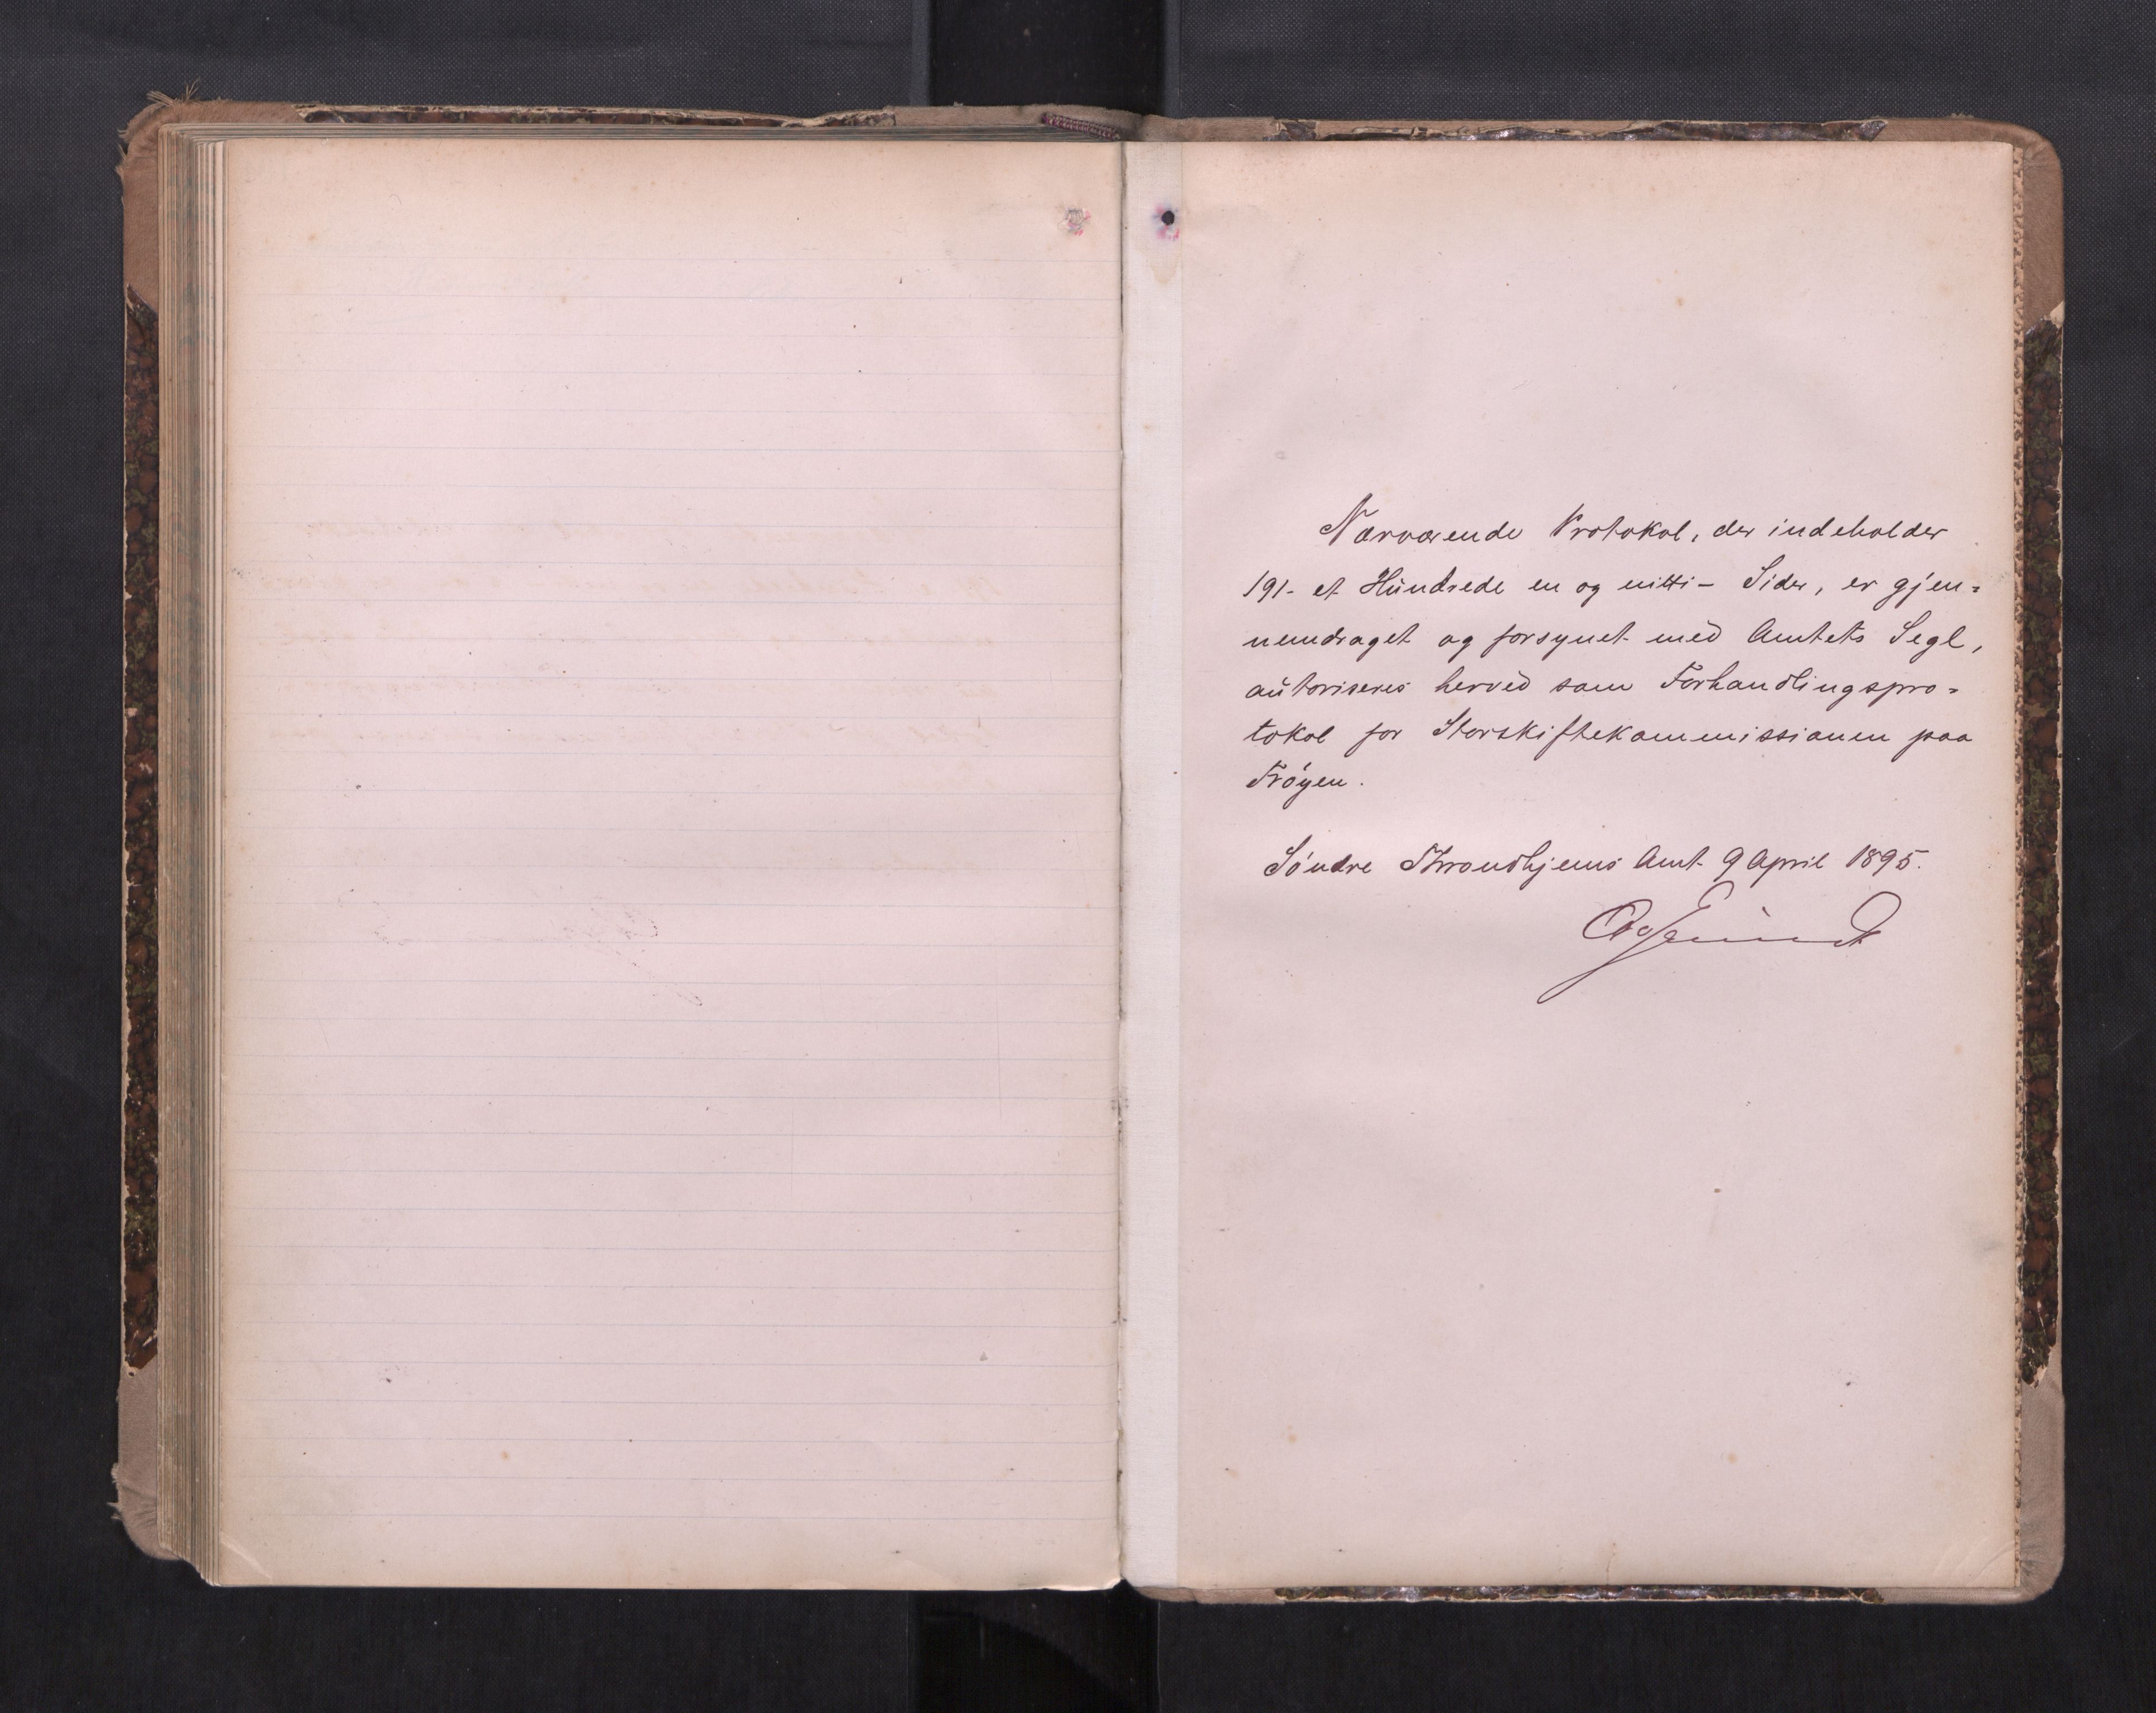 Nærværende Protokol, der indeholder
191- et Hundrede en og nitti - Sider, er gjen=
nemdraget og forsynet med Amtets Segl,
autoriseres herved som Forhandlingspro=
tokol for Storskiftekommissionen paa
Frøyen.
Søndre Throndhjems Amt 9 April 1895.